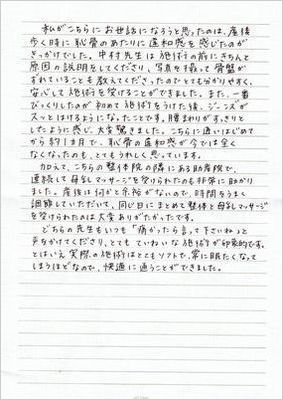 私がこちらにお世話になろうと思ったのは、産後
歩く時に恥骨のあたりに違和感を感じたのが
きっかけでした。中村先生は施術の前にきちんと
原因の説明をしてくださり、写真を撮って骨盤が
ずれていることも教えてくださったのでとても分かりやすく、
安心して施術を受けることができました。また、一番
びっくりしたのが初めて施術をうけた後、ジーンズが
スッとはけるようになったことです。腰まわりがすっきりと
したように感じ、大変驚きました。こちらに通いはじめて
から約1ヶ月で、恥骨の違和感が今では全く
なくなったのも、とてもうれしく思っています。
加えて、こちらの整体院の隣にある助産院で、
連続して母乳マッサージを受けられたのも非常に助かり
ました。産後は何かと余裕がないので、時間をうまく
調節していただいて、同じ日にまとめて整体と母乳マッサージ
を受けられたのは大変ありがたかったです。
どちらの先生もいつも「痛かったら言って下さいね」と
声をかけてくださり、とてもていねいな施術が印象的です。
とはいえ実際の施術はとてもソフトで、常に眠たくなって
しまうほどなので、快適に通うことができました。